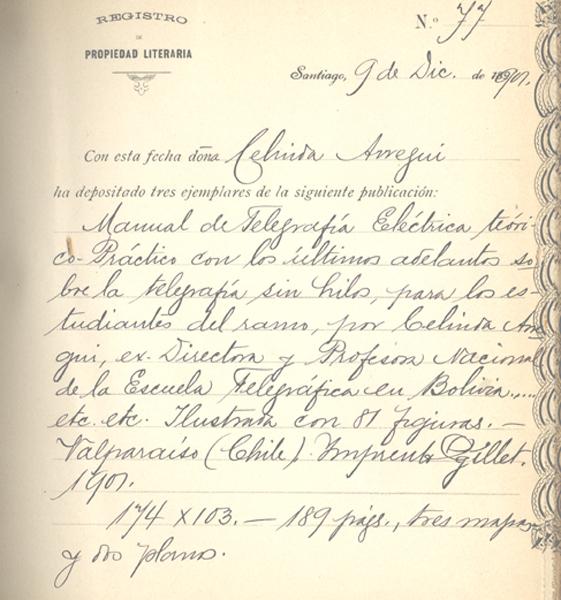 REGISTRO
DE
PROPIEDAD LITERARIA
N.º 77
Santiago, 9 de Dic. de 1901.
Con esta fecha doña Celinda Arregui
ha depositado tres ejemplares de la siguiente publicación:
Manual de Telegrafía Eléctrica teóri-
co-Práctico con los últimos adelantos so-
bre la telegrafía sin hilos, para los es-
tudiantes del ramo, por Celinda Arre
gui, ex-Directora y Profesora Nacional
de la Escuela Telegráfica en Bolivia....
etc. etc. Ilustrada con 81 figuras. —
Valparaíso (Chile). Imprenta Gillet.
1901.
174 x 103. — 189 págs., tres mapas
y dos planos.